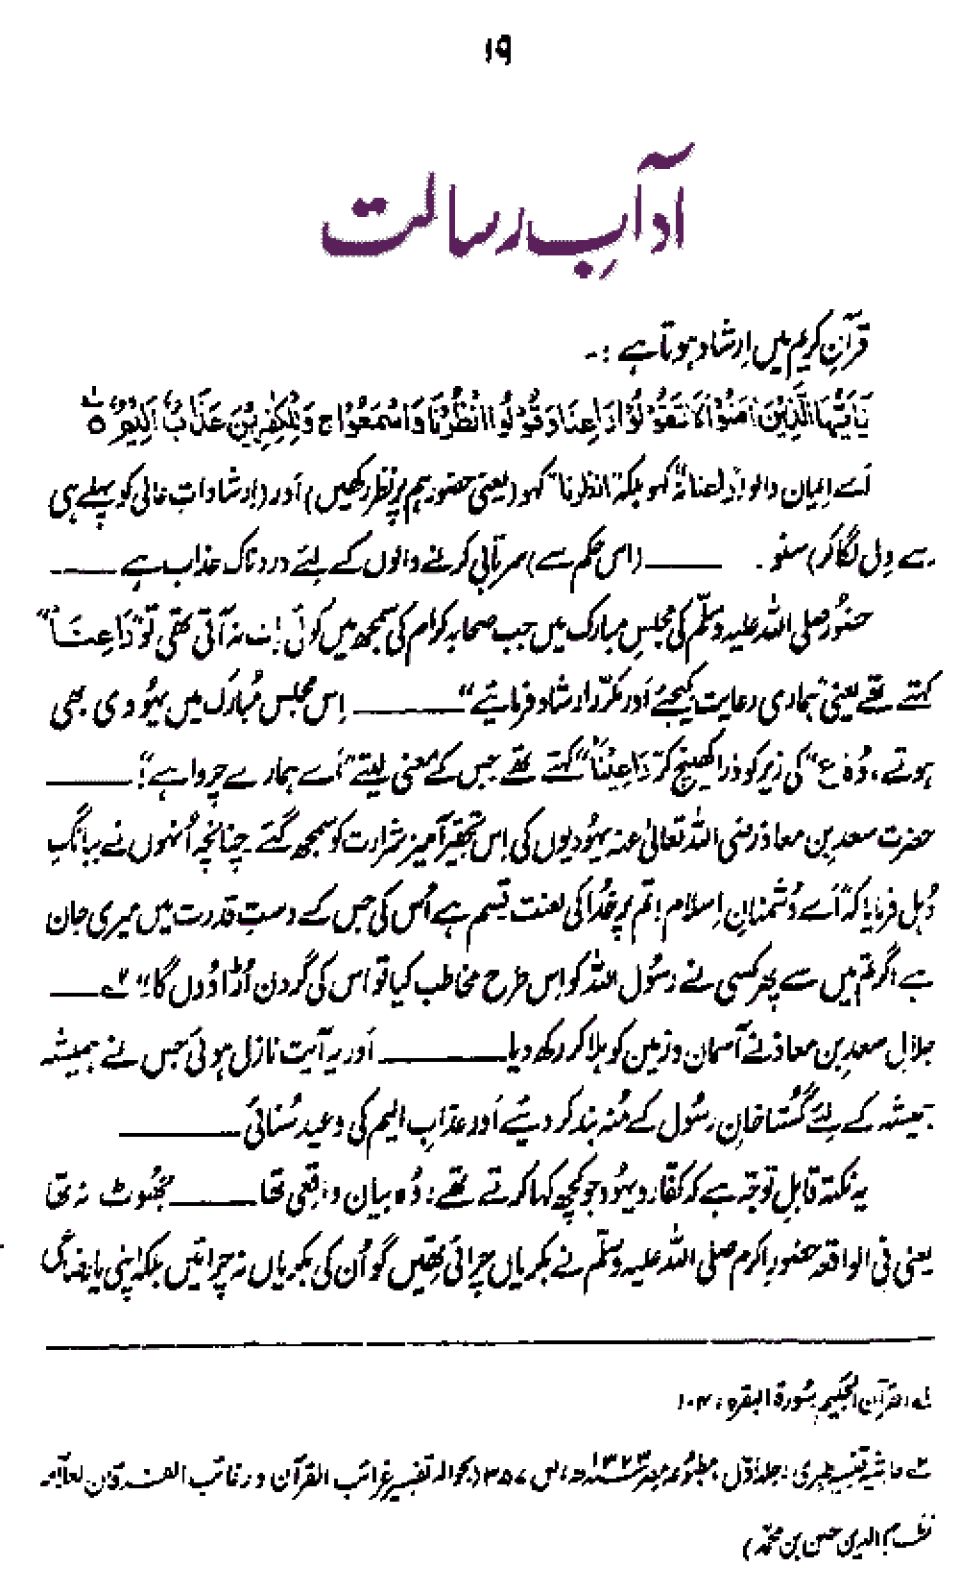 ۱۹
آدابِ رسالت
قرآنِ کریم میں اِرشاد ہوتا ہے :-
یٰۤاَیُّهَا الَّذِیْنَ اٰمَنُوْا لَا تَقُوْلُوْا رَاعِنَا وَقُوْلُوا انْظُرْنَا وَاسْمَعُوْا ج وَلِلْكٰفِرِیْنَ عَذَابٌ اَلِیْمٌ ۵ لہ
اَے اِیمان والو! "راعنا" نہ کہو بلکہ "انظرنا" کہو (یعنی حضور ہم پر نظر رکھیں) اَور (ارشاداتِ عالی کو پہلے ہی
سے دِل لگا کر) سنو ۔ ——— (اس حکم سے) سرتابی کرنے والوں کے لئے دردناک عذاب ہے ———
حضُور صلی اللہ علیہ وسلّم کی مجلسِ مبارک میں جب صحابہ کرام کی سمجھ میں کوئی بات نہ آتی تھی تو "رَاعِنَا"
کہتے تھے یعنی "ہماری رعایت کیجئے اَور مکرّر ارشاد فرمائیے" ——— اِس مجلسِ مُبارَک میں یہُودی بھی
ہوتے، وُہ "ع" کی زیر کو ذرا کھینچ کر "رَاعِیْنَا" کہتے تھے جس کے معنی لیتے "اَے ہمارے چرواہے"! ———
حضرت سعد بن معاذ رضی اللہ تعالیٰ عنہ یہُودیوں کی اِس تحقیر آمیز شرارت کو سمجھ گئے چنانچہ اُنہوں نے ببانگِ
دُہل فرمایا کہ "اَے دُشمنانِ اِسلام! تم پر خُدا کی لعنت قسم ہے اُس کی جس کے دستِ قدرت میں میری جان
ہے اگر تم میں سے پھر کسی نے رسُول اللہ کو اِس طرح مخاطب کیا تو اس کی گردن اُڑا دُوں گا!" ۲ ———
جلالِ سعد بن معاذ نے آسمان و زمین کو ہلا کر رکھ دیا ——— اَور یہ آیت نازل ہوئی جس نے ہمیشہ
ہمیشہ کے لئے گُستاخانِ رسُول کے مُنہ بند کر دیئے اَور عذابِ الیم کی وعید سُنائی ———
یہ نکتہ قابلِ توجّہ ہے کہ کفار و یہُود جو کچھ کہا کرتے تھے؛ وُہ بیانِ واقعی تھا ——— جھُوٹ نہ تھا
یعنی فی الواقعہ حضورِ اکرم صلی اللہ علیہ وسلّم نے بکریاں چرائی تھیں گو اُن کی بکریاں نہ چرائیں بلکہ اپنی یا رضاعی
لہ القرآن الحکیم سُورۃ البقرہ، ۱۰۴
۲ حاشیہ تفسیر طبری، جلد اوّل، مطبوعہ مصر ۱۳۲۳ھ، ص ۳۵۷ (بحوالہ تفسیر غرائب القرآن و رغائب الفرقان لعلّامہ
نظام الدین حسن بن محمّد)